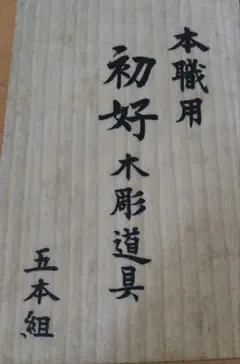 本職用
初好木彫道具
五本組